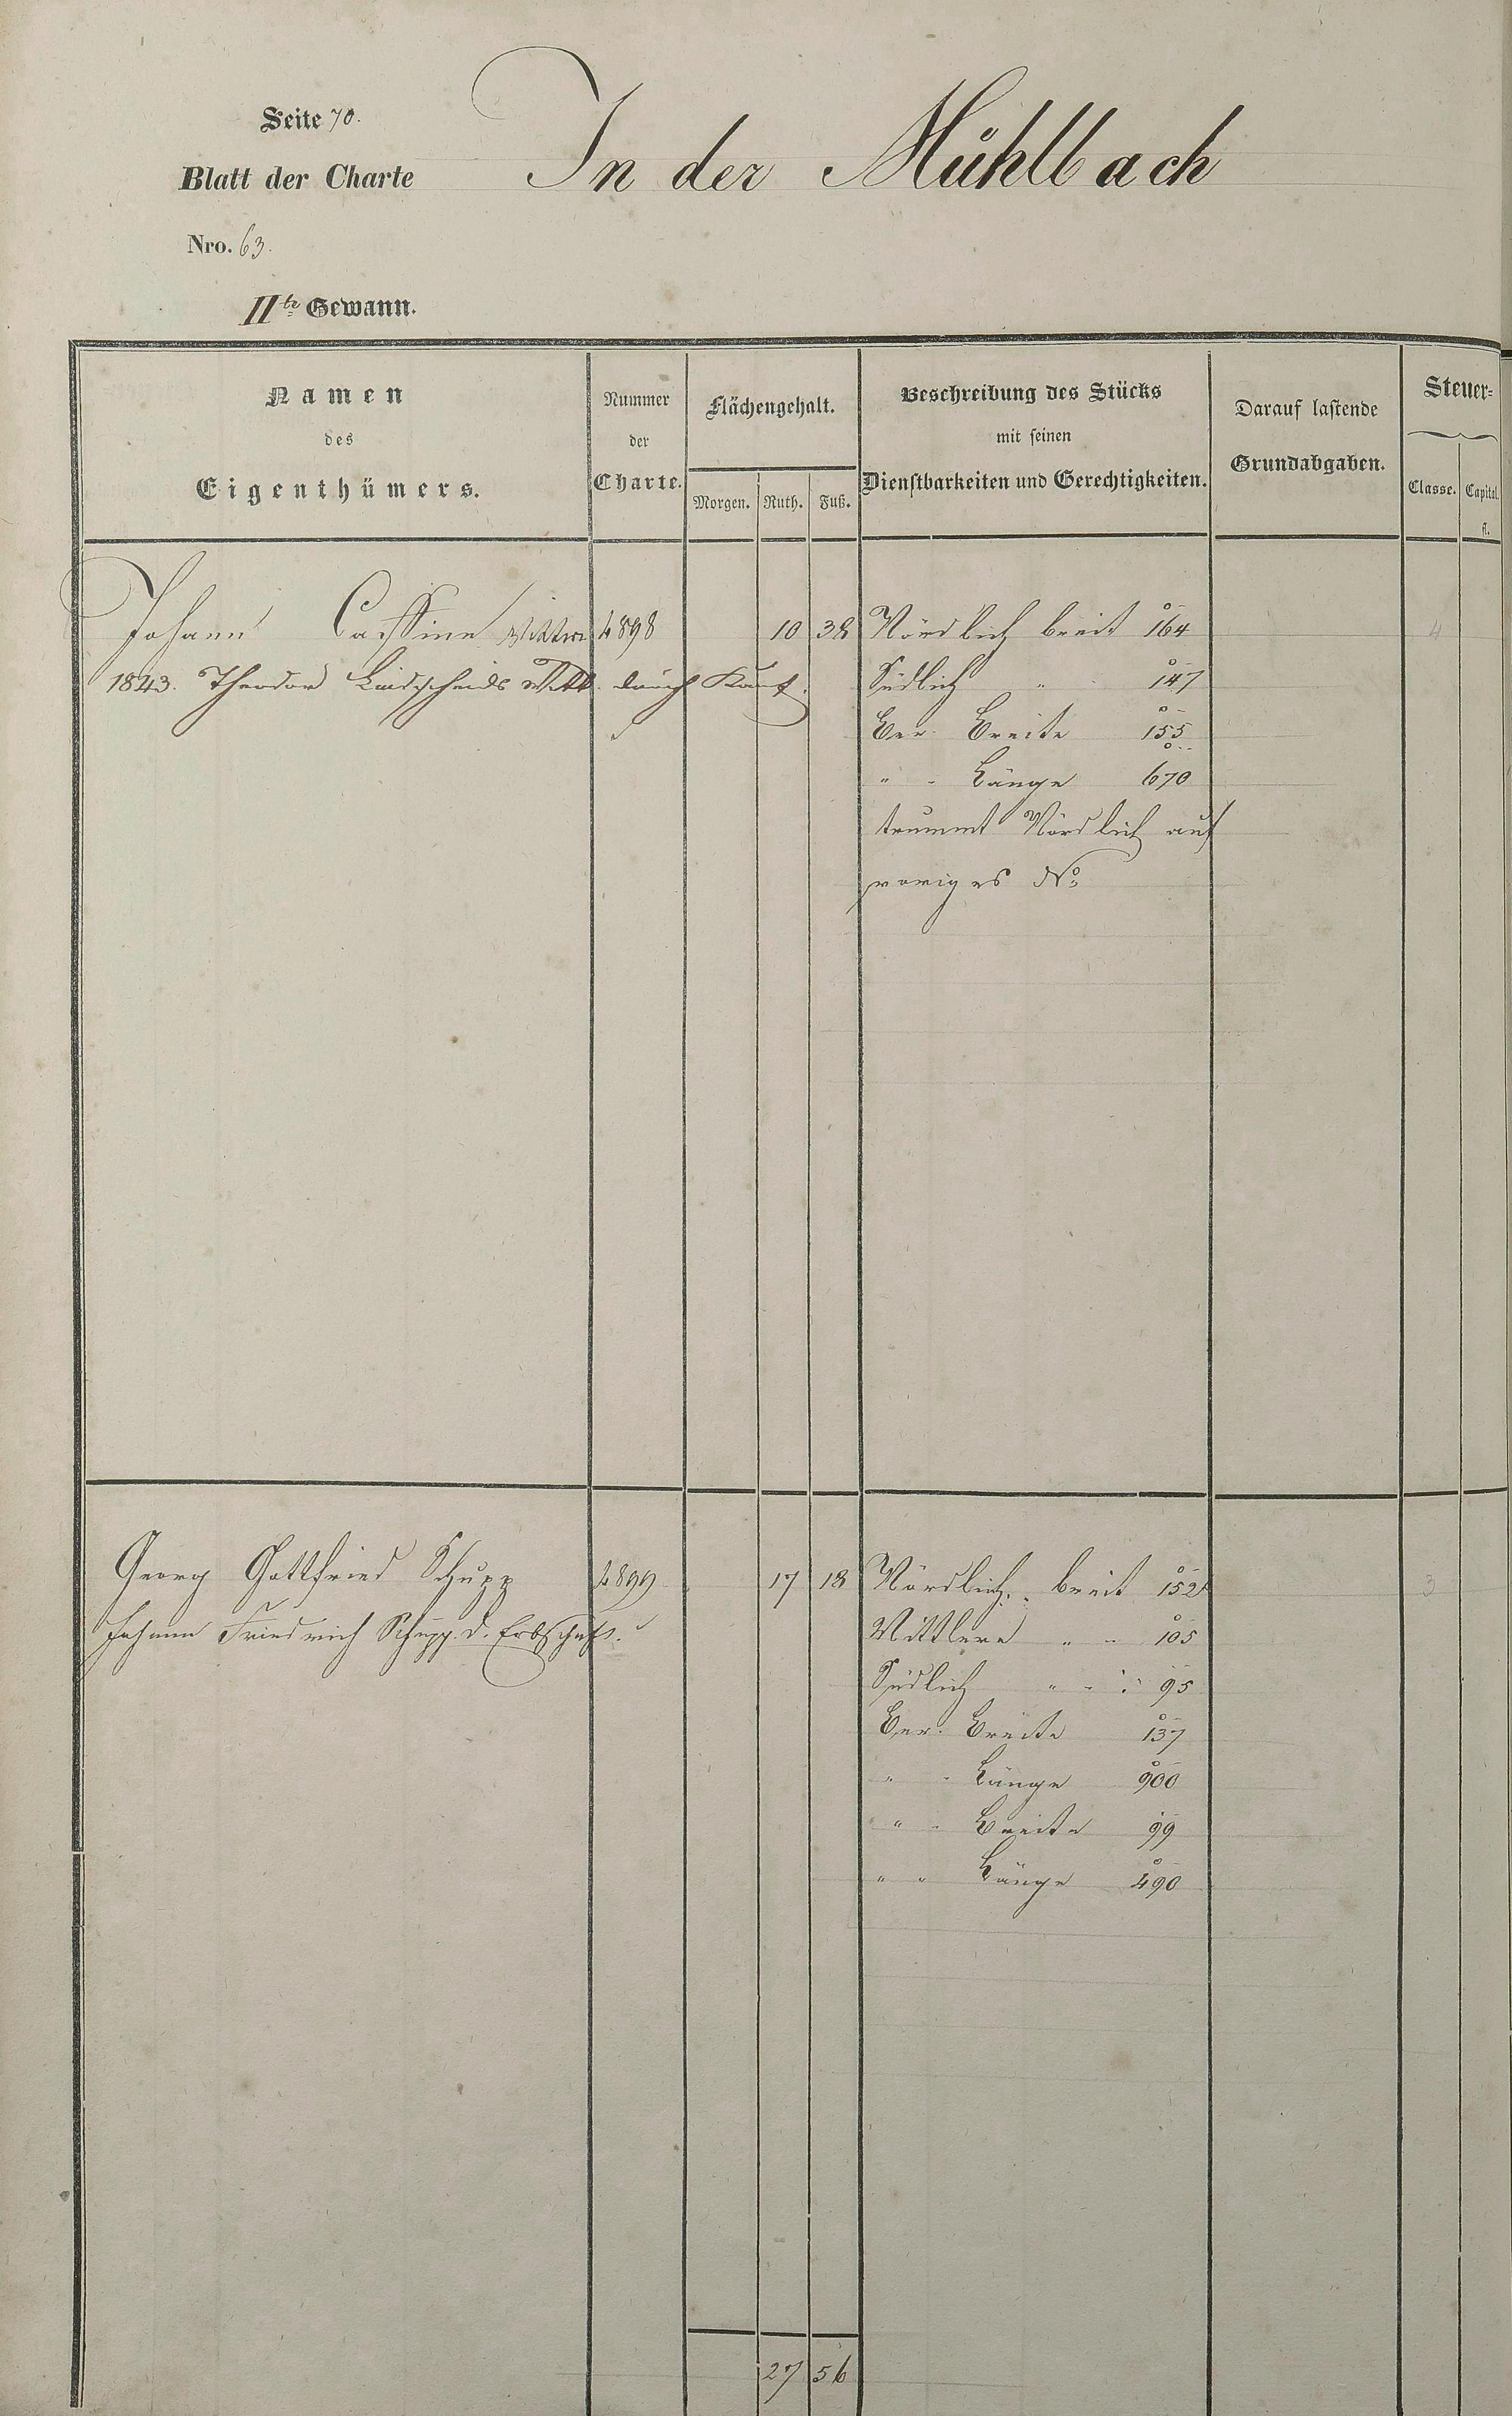 Seite 70.
In der Mühlbach
Blatt der Charte
Nro. 63.
IIte Gewann.
Namen
des
Eigenthümers.
Nummer
der
Charte.
Flächengehalt.
Morgen. Ruth. Fuß.
Beschreibung des Stücks
mit seinen
Dienstbarkeiten und Gerechtigkeiten.
Darauf lastende
Grundabgaben.
Steuer-
Classe. Capital.
fl.
Johann Cassine Wittwe 4898 10 38 Nördlich breit 164 4
1843. Theodor Wittb. durch Kauf. Südlich " 147
Ber. Breite 155
" - Länge 670
trummt Nördlich auf
voriges No
Georg Gottfried Schupp 4899 17 18 Nördlich " breit 152 3
Johann Friedrich Schupp d. Erbschaft. Mittlere " " 105
Südlich " " 95
Ber. Breite 137
" - Länge 900
" - Breite 99
" " Länge 490
27 56